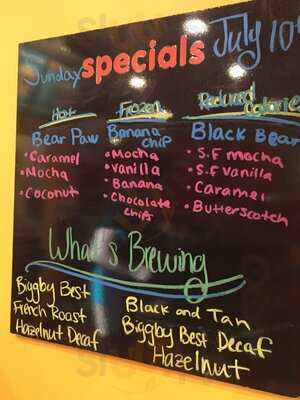 Sunday specials July 10th
Hot
Bear Paw
• Caramel
• Mocha
• Coconut
Frozen
Banana
chip
• Mocha
• Vanilla
• Banana
• Chocolate
chips
Reduced Calorie
Black Bear
• S.F mocha
• S.F vanilla
• Caramel
• Butterscotch
What's Brewing
Biggby Best
French Roast
Hazelnut Decaf
Black and Tan
Biggby Best Decaf
Hazelnut